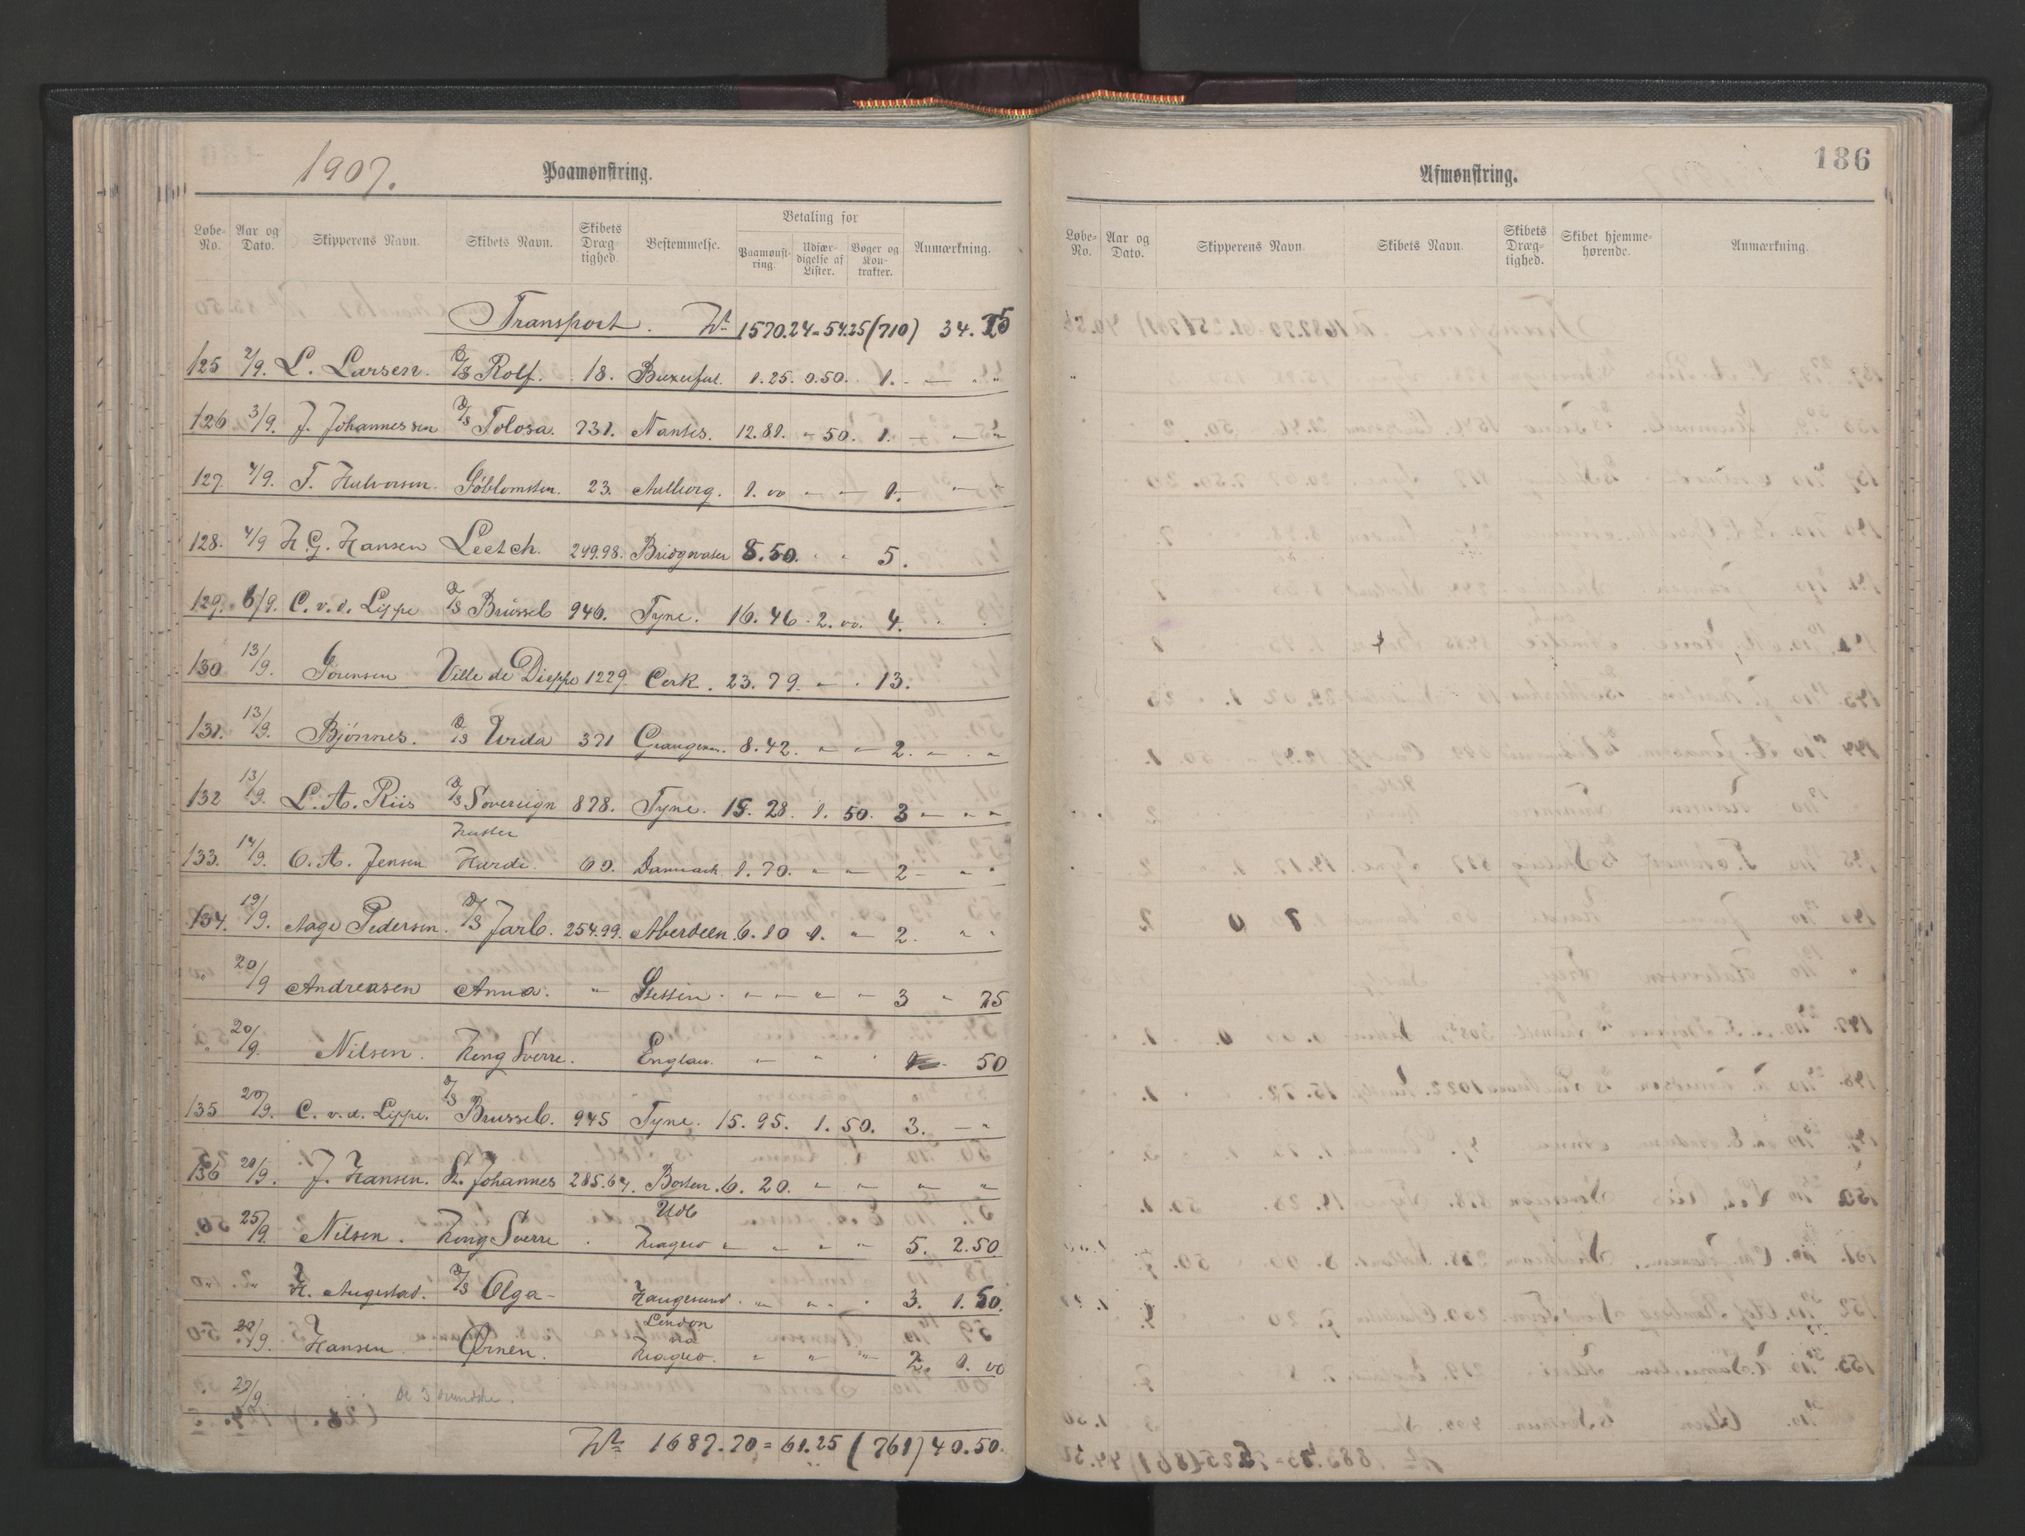 1907. Paamønstring.
Løbe-No. Aar og Dato. Skipperens Navn. Skibets Navn. Skibets Dræg-tighed. Bestemmelse. Betaling for Paamønst-ring. Udfær-digelse af Lister. Bøger og Kon-trakter. Anmærkning.
Transport. 1570.24 = 54.25 (710) 34.75
125 2/9. L. Larsen. D/S Rolf. 18. 1.25. 0.50. 1. — " "
126 3/9. J. Johannessen D/S Tolosa. 731. Nantes. 12.81. - 50. 1. — - "
127. 4/9. T. Halvorsen. Söblomsten. 23. Aalborg. 1.00 - - 1. - "
128. 4/9 H.G. Hansen Leetch. 249.98. Bridgwater 8.50. " " 5.
129. 6/9. C. v. d. Lippe D/S Brüssel 946. Tyne. 16.46. 2.00. 4.
130 13/9. Sörensen Ville de Dieppe 1229. Cork. 23.79. - . 13.
131. 13/9. Bjønnes. D/S Urda 371 8.42. " " 2. - "
132 13/9. L. A. Riis D/S Sovereign 878. Tyne. 15.28 1.50. 3 - " "
133. 14/9. O. A. Jensen Hardi. 60. Danmark 1.70. " " 2 - " "
134. 19/9. Aage Pedersen. D/S Jarl. 254.99. Aberdeen. 6.10 1. " 2. " "
" 20/9 Andreasen Anna. " Stettin. - " " " 3 " 75
" 20/9. Nilsen. Kong Sverre. England. " " 50
135 20/9. C. v. d. Lippe. D/S Brussel. 945 Tyne. 15.95. 1.50. 3. - "
136 20/9. J. Hansen. St. Johannes 285.64. Boston. 6.20. " " " "
" 25/9. Nilsen. Kong Sverre . Udl Kragerø " " " " 5. 2.50
" " H. Augestad. D/S Olga - Haugesund. " " . 3. 1.50.
" 28/9. Hansen. Ørnen. London via Kragerø. " " " 2. 1.00
27/9
1687.20 = 61.25 (761) 40.50.
186
Afmønstring.
Løbe-No. Aar og Dato. Skipperens Navn. Skibets Navn. Skibets Dræg-tighed. Skibet hjemme-hørende. Anmærkning.